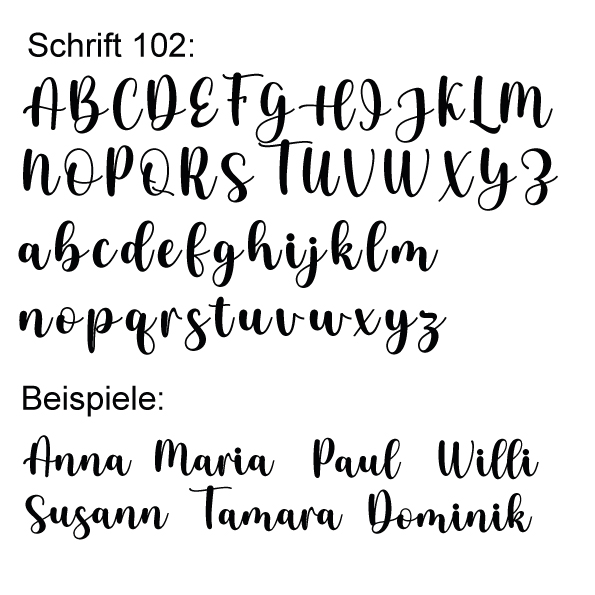 Schrift 102:
ABCDEFGHIJKLM
NOPQRSTUVWXYZ
abcdefghijklm
nopqrstuvwxyz
Beispiele:
Anna Maria Paul Willi
Susann Tamara Dominik